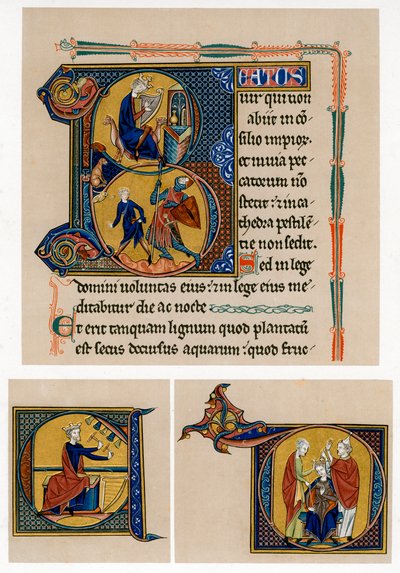 BEATUS
uir qui non
abiit in cō-
silio impior.
et in uia pec-
catorum nō
stetit : ⁊ in ca-
thedra pestilē-
tie non sedit.
Sed in lege
domini uoluntas eius : ⁊ in lege eius me-
ditabitur die ac nocte
Et erit tanquam lignum quod plantatū
est secus decursus aquarum : quod fruc-